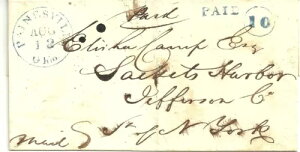 Paid
PAID 10
PAINESVILLE
AUG
12
Ohio
Elisha Camp Esq
Sackets Harbor
Jefferson Co
St of N York